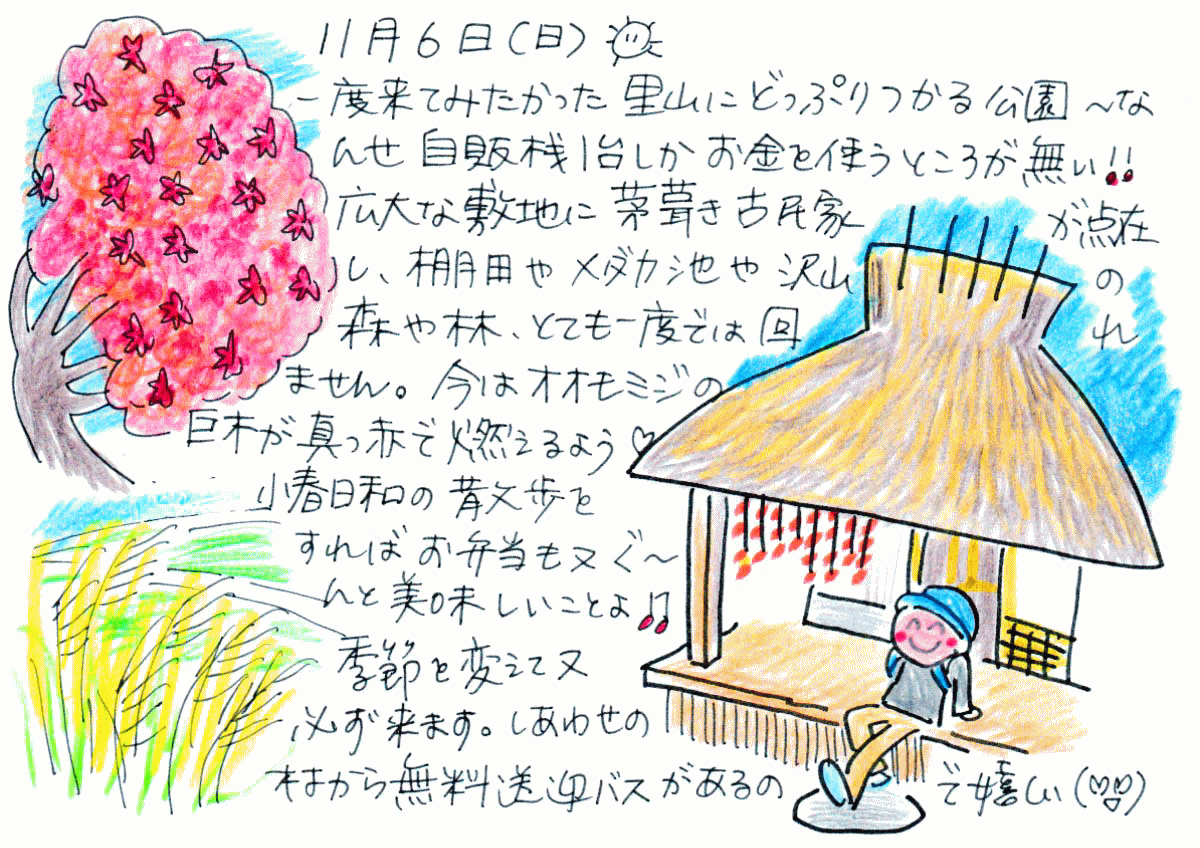 11月6日(日)
一度来てみたかった里山にどっぷりつかる公園〜な
んせ自販栈1台しかお金を使うところが無い!!
広大な敷地に茅葺き古民家が点在
し、棚田やメダカ池や沢山の
森や林、とても一度では回れ
ません。今はオオモミジの
巨木が真っ赤で燃えるよう♡
小春日和の散文歩を
すればお弁当も又ぐ〜
んと美味しいことよ♫
季節を変えて又
必ず来ます。しあわせの
村から無料送迎バスがあるので嬉しい(♡♡)